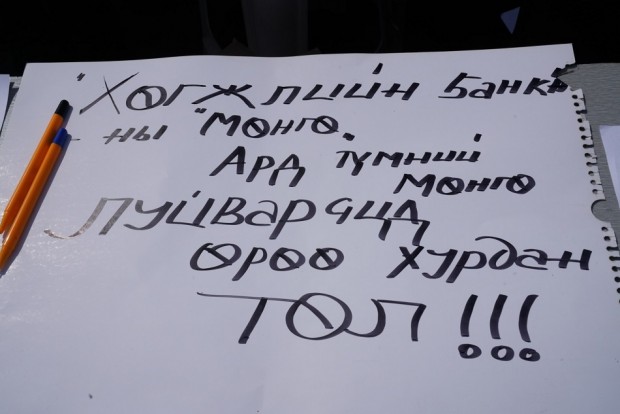 "Хөгжлийн Банк"
-ны "Мөнгө.
Ард түмний
мөнгө
Луйварчид
өрөө хурдан
төл !!!